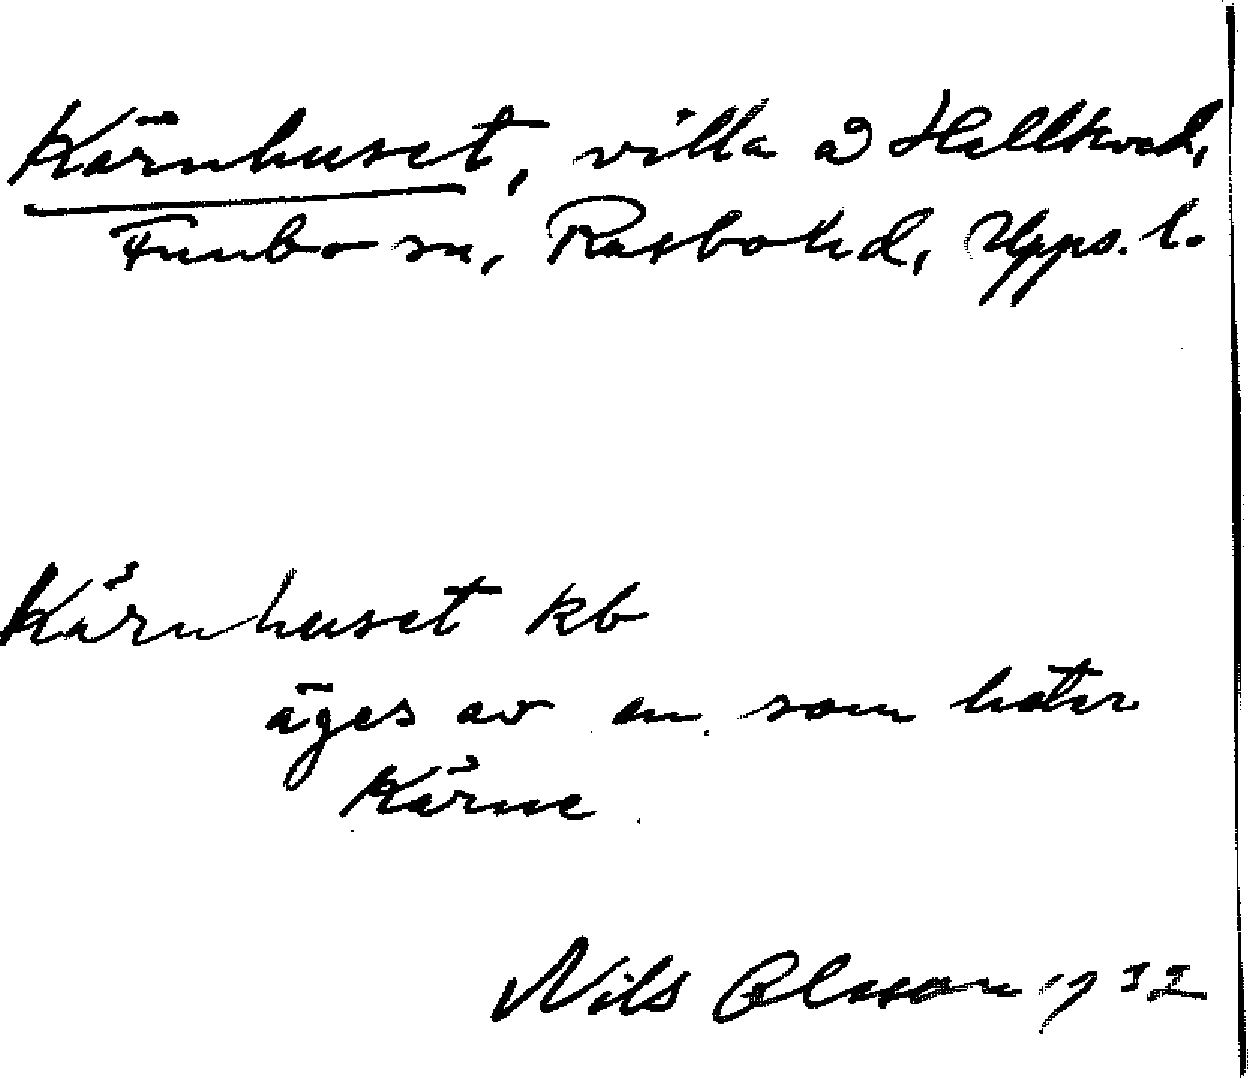 Kärnhuset, villa å Hallkved,
Funbo sn, Rasbo hd, Upps. l.
Kärnhuset kb
äges av en som heter
Kärne
Nils Olsson 1932